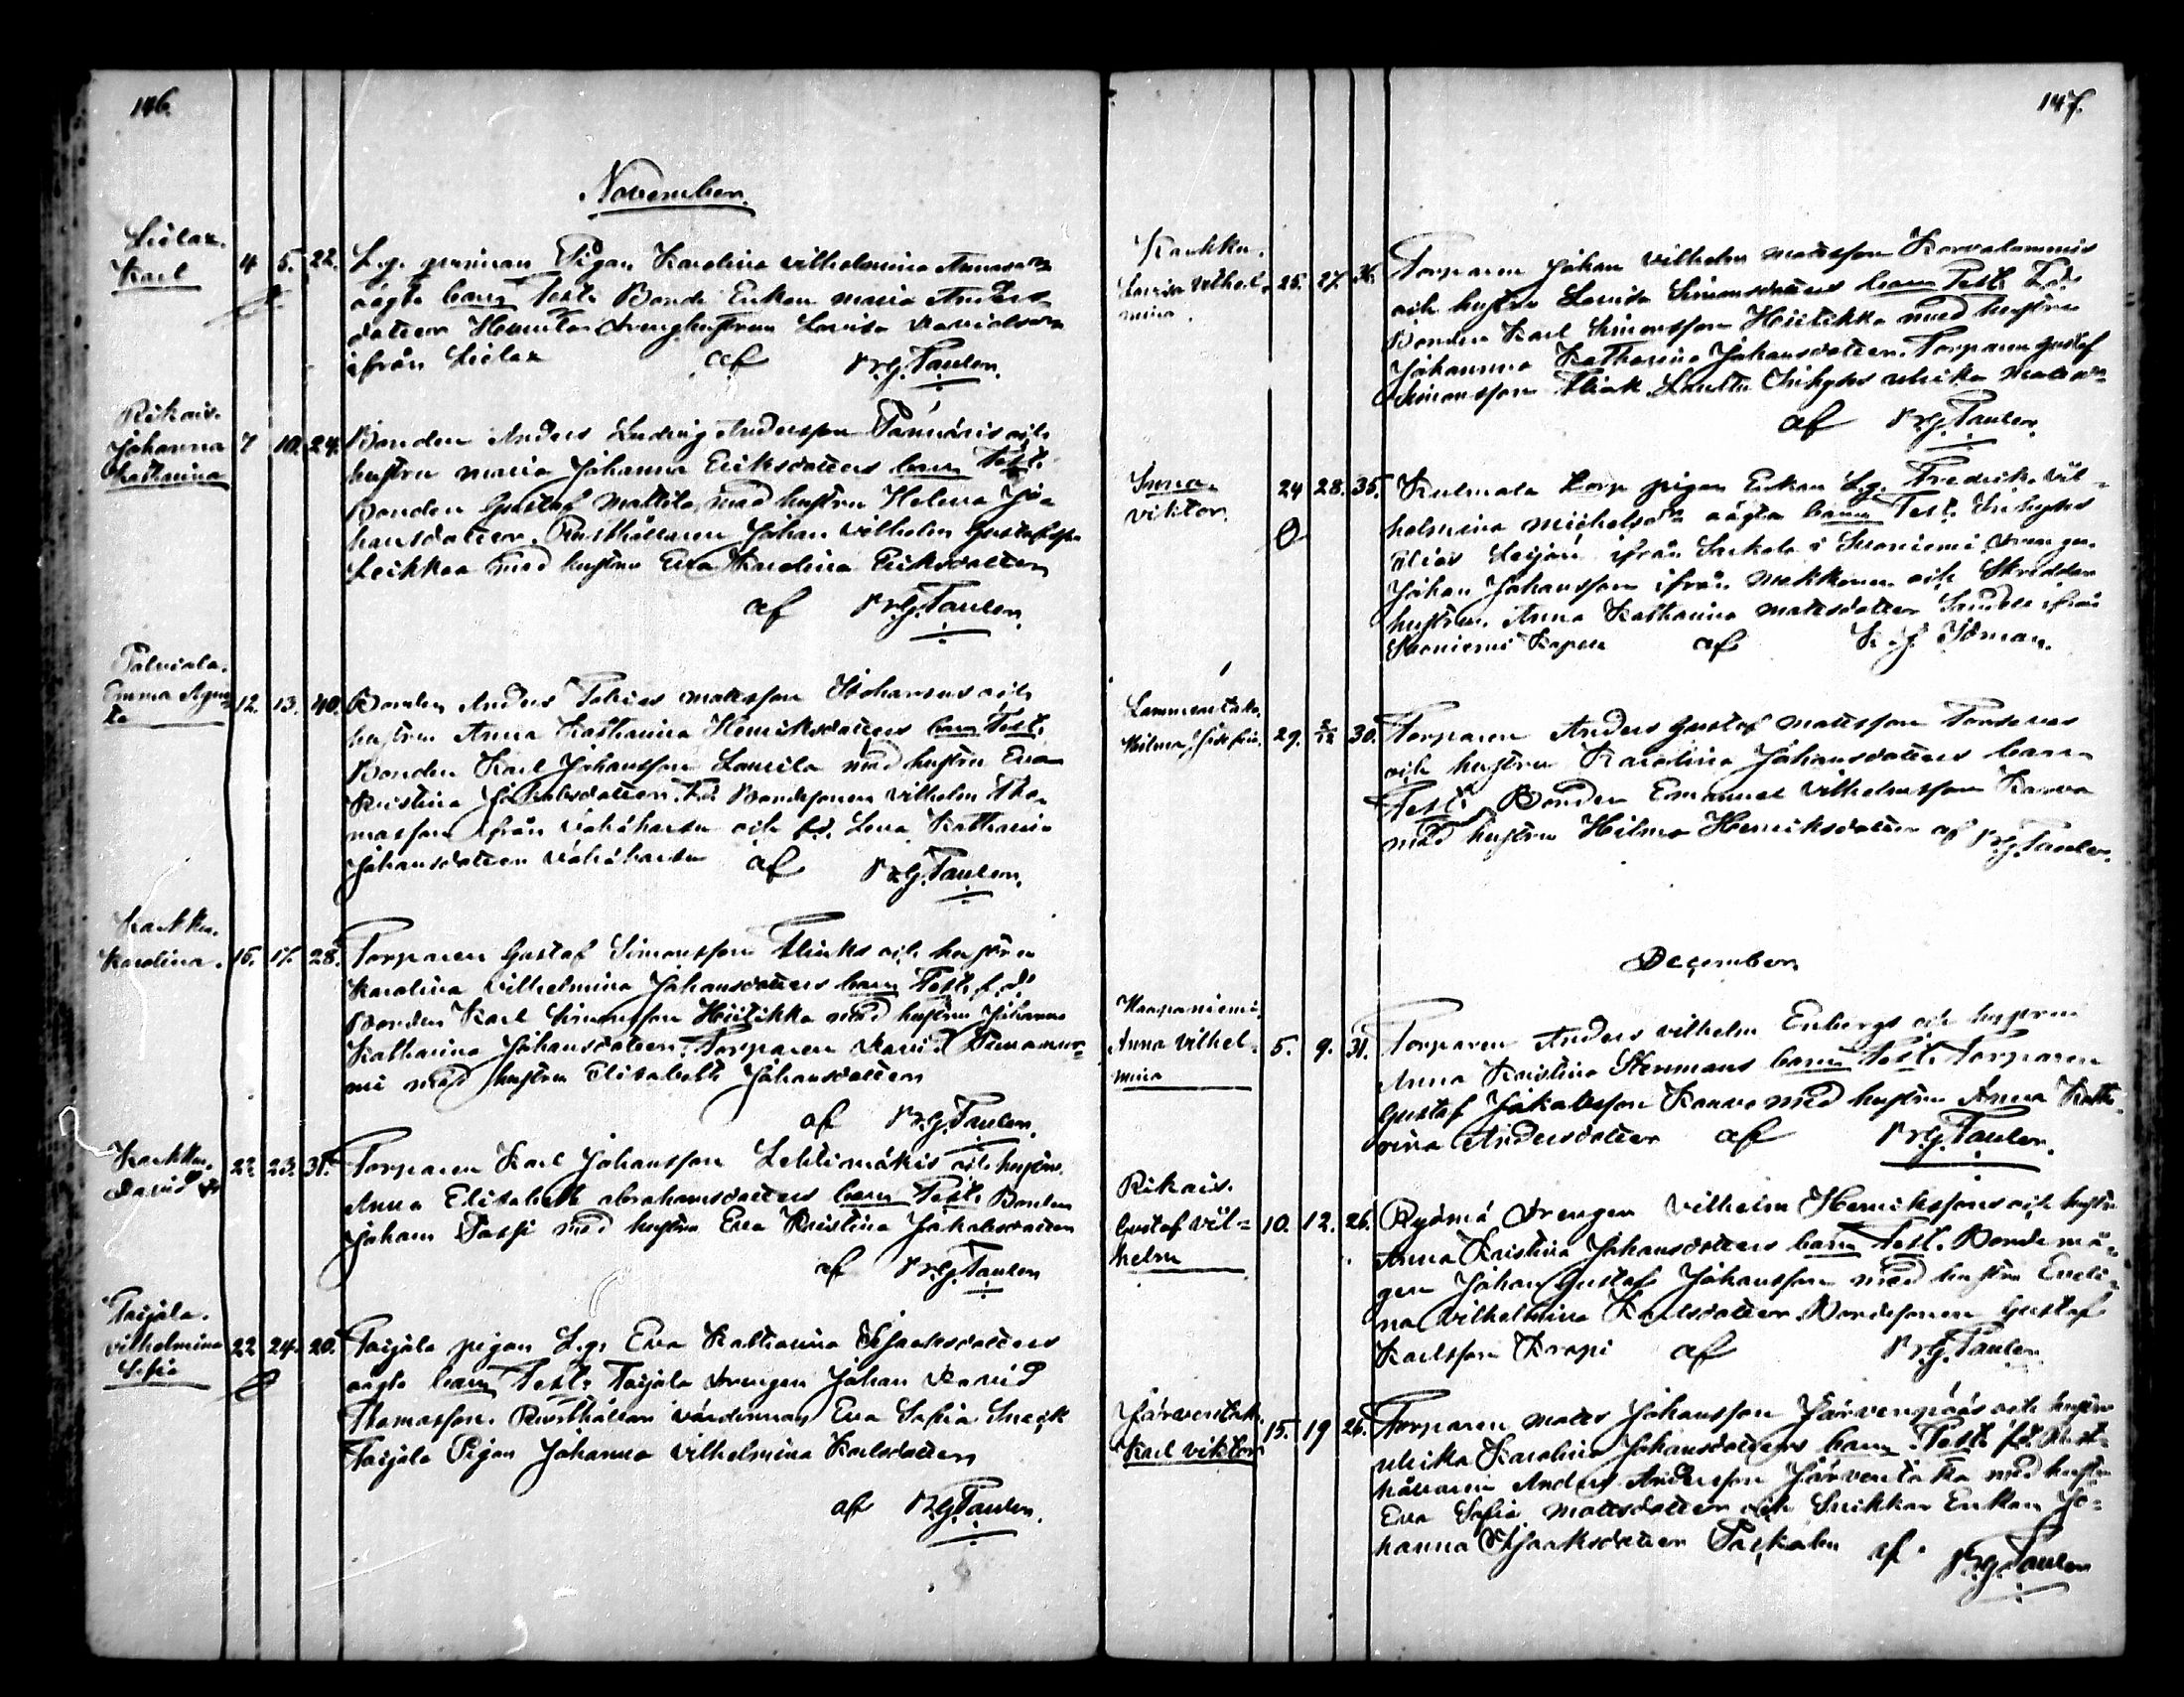 146.
November.
Liólax.
Karl 4 5. 22. L.g. Pigan Karolina Vilhelmina
oägta barn Test. Bonde Enkan Maria Anders
dotter Drenghustrun Lovisa
ifrån Liólax af P.G. Taulen.
Rikais.
Johanna
Katharina 7 10. 24. Bonden Anders Ludvig Andersson och
hustru Maria Johanna Eriksdotters barn Test.
Bonden Gustaf Mattila med hustru Helena Jo-
hansdotter. Rusthållaren Johan Vilhelm Gustafsson
Leikkaa med hustru Eva Karolina Eriksdotter
af P.G. Taulen.
Palviala.
Emma Agus-
ta 12. 13. 40. Bonden Anders Tobias Mattsson och
hustru Anna Katharina Henriksdotters barn Test.
Bonden Karl Johansson Laurila med hustru Eva
Kristina Jakobsdotter. F.d. Bondesonen Vilhelm Tho-
masson ifrån Vähähaara och f.d. Lena Katharina
Johansdotter Vähähaara af P.G. Taulen.
Karkku.
Karolina. 15. 17. 28. Torparen Gustaf Simonsson Flinks och hustrun
Karolina Vilhelmina Johansdotters barn Test. f.d.
Bonden Karl Simonsson Hiitikka med hustru Johanna
Katharina Johansdotter. Torparen David
mi med hustru Elisabeth Johansdotter
af P.G. Taulen.
Karkku.
David 22 23. 31. Torparen Karl Johansson Lehtimäkis och hustru
Anna Elisabeth Abrahamsdotters barn Test. Bonden
Johan Sassi med hustru Eva Kristina Jakobsdotter
af P.G. Taulen
Taijala.
Vilhelmina
Sofia 22 24. 20. Taijala pigan L.g. Eva Katharina Isaaksdotters
oägta barn Test. Taijala Drengen Johan David
Thomasson. Rusthållar värdinnan Eva Sofia Sneck
Taijala Pigan Johanna Vilhelmina Karlsdotter
af P.G. Taulen.
147.
Karkku.
Lovisa Vilhel-
mina. 25. 27. 36. Torparen Johan Vilhelm Mattsson Korvalammis
och hustru Lovisa Simonsdotters barn Test. F.d.
Bonden Karl Simonsson Hiitikka med hustru
Johanna Katharina Johansdotter. Torparen Gustaf
Simonsson Flink. Ulrika
af P.G. Taulen.
Viktor. 24 28. 35. Kulmala Torp pigan Enkan L.g. Fredrika Vil-
helmina oägta barn Test. Inhyses
Elias ifrån i Suoniemi. Drengen
Johan Johansson ifrån Makkonen och Skräddar
hustrun Anna Katharina Mattsdotter ifrån
Suoniemi Kapell af K. J. Idman.
Lammentaka.
Hilma Josefina. 29. 2/12 30. Torparen Anders Gustaf Mattsson
och hustru Karolina Johansdotters barn
Test. Bonden Emanuel Vilhelmsson Karva
med hustru Hilma Henriksdotter af P.G. Taulen.
December.
Haapaniemi.
Anna Vilhel-
mina 5. 9. 31. Torparen Anders Vilhelm Enbergs och hustrun
Anna Kristina Stenmans barn Test. Torparen
Gustaf Jakobsson Kauva med hustru Anna Katha-
rina Andersdotter af P.G. Taulen.
Rikais.
Gustaf Vil-
helm 10. 12. 26. Ryömä Drengen Vilhelm Henrikssons och hustru
Anna Kristina Johansdotters barn Test. Bondemå-
gen Johan Gustaf Johansson med hustru Eveli-
na Vilhelmina Karlsdotter. Bondesonen Gustaf
Karlsson Krapi af P.G. Taulen.
Järventak.
Karl Viktor 15. 19 26. Torparen Matts Johansson Järvenpääs och hustru
Ulrika Karolina Johansdotters barn. Test. f.d. Rust-
hållaren Anders Andersson Järventaka med hustru
Eva Sofia Mattsdotter och Snikkar Enkan Jo-
hanna Isaaksdotter af P.G. Taulen